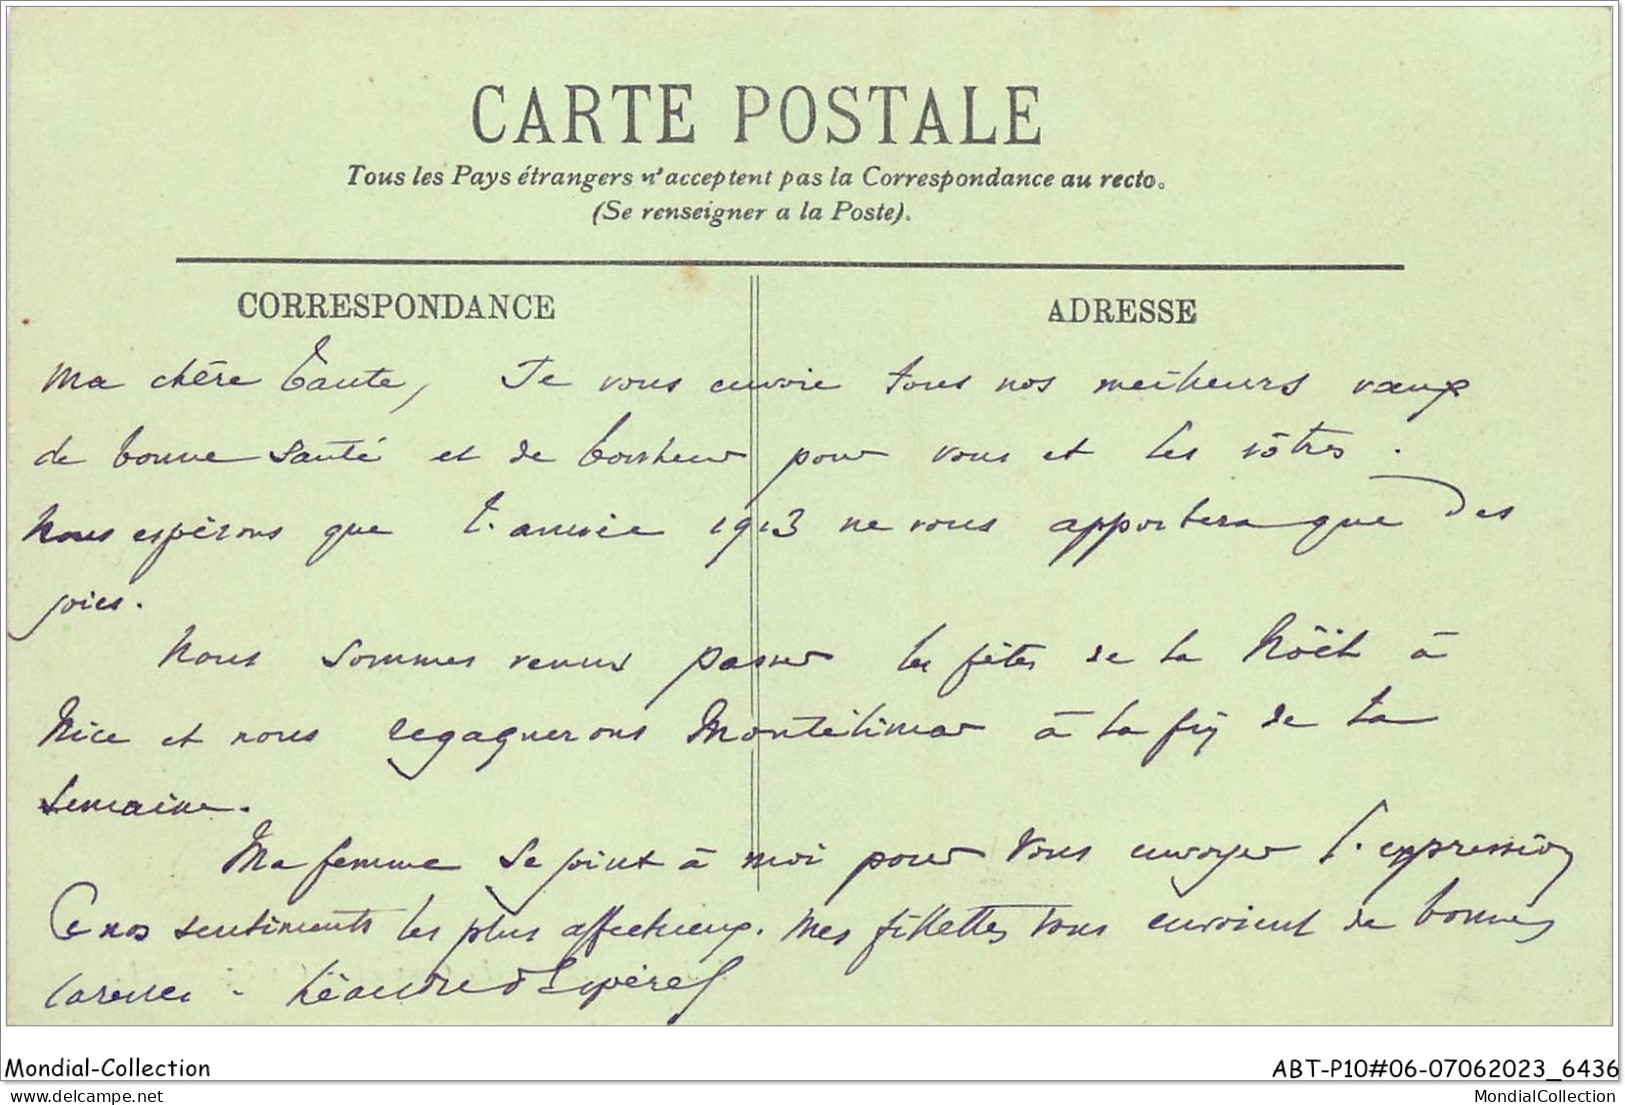 CARTE POSTALE
Tous les Pays étrangers n'acceptent pas la Correspondance au recto.
(Se renseigner a la Poste).
CORRESPONDANCE
ADRESSE
Ma chère Tante, Je vous envoie tous nos meilleurs vœux
de bonne santé et de bonheur pour vous et les vôtres.
Nous espérons que l'année 1913 ne vous apportera que des
joies.
Nous sommes venus passer les fêtes de la Noël à
Nice et nous regagnerons Montélimar à la fin de la
semaine.
Ma femme se joint à moi pour vous envoyer l'expression
de nos sentiments les plus affectueux. Mes fillettes vous envoient de bonnes
caresses - Léandre
Mondial-Collection
ABT-P10#06-07062023_6436
delcampe.net
MondialCollection